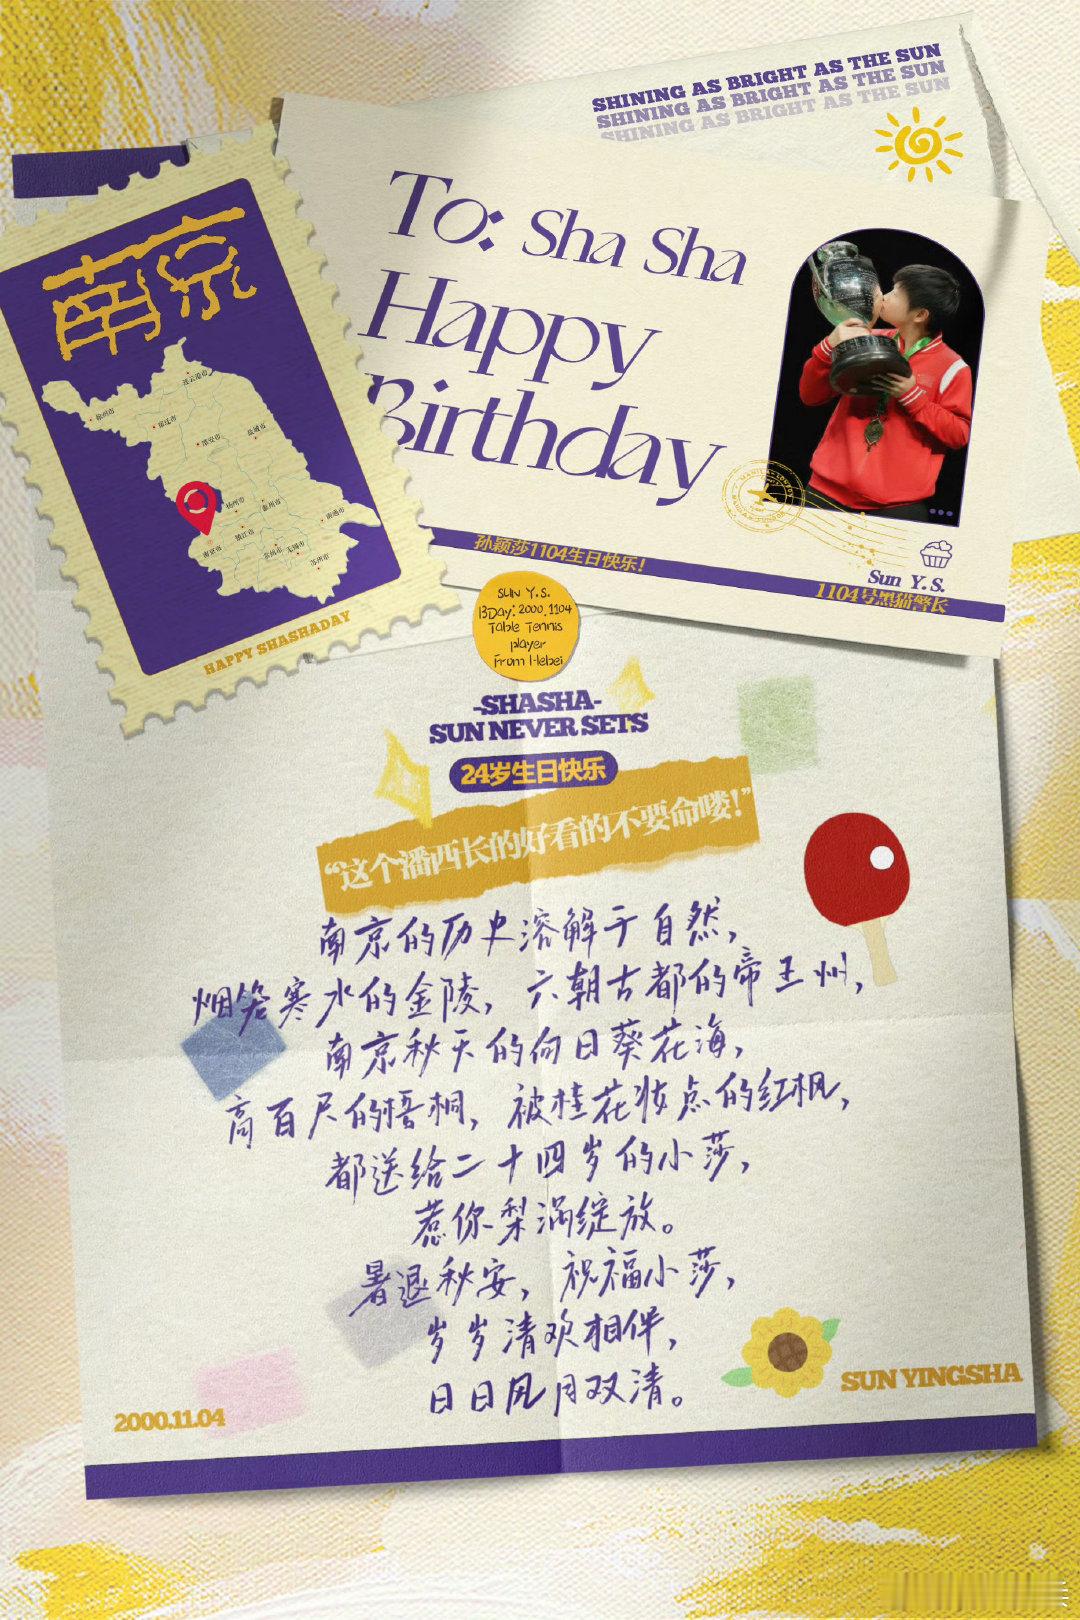 SHINING AS BRIGHT AS THE SUN
SHINING AS BRIGHT AS THE SUN
SHINING AS BRIGHT AS THE SUN
南京
连云港市
徐州市
宿迁市
淮安市
盐城市
扬州市
泰州市
南通市
南京市
镇江市
常州市
无锡市
苏州市
HAPPY SHASHADAY
To: Sha Sha
Happy
Birthday
孙颖莎1104生日快乐!
Sun Y.S.
1104号黑猫警长
SUN Y.S.
BDay: 2000.1104
Table Tennis
player
From Hebei
-SHASHA-
SUN NEVER SETS
24岁生日快乐
“这个潘西长的好看的不要命喽!”
南京的历史溶解于自然，
烟笼寒水的金陵，六朝古都的帝王州，
南京秋天的向日葵花海，
高百尺的梧桐，被桂花妆点的红枫，
都送给二十四岁的小莎，
惹你梨涡绽放。
暑退秋安，祝福小莎，
岁岁清欢相伴，
日日风月双清。
SUN YINGSHA
2000.11.04